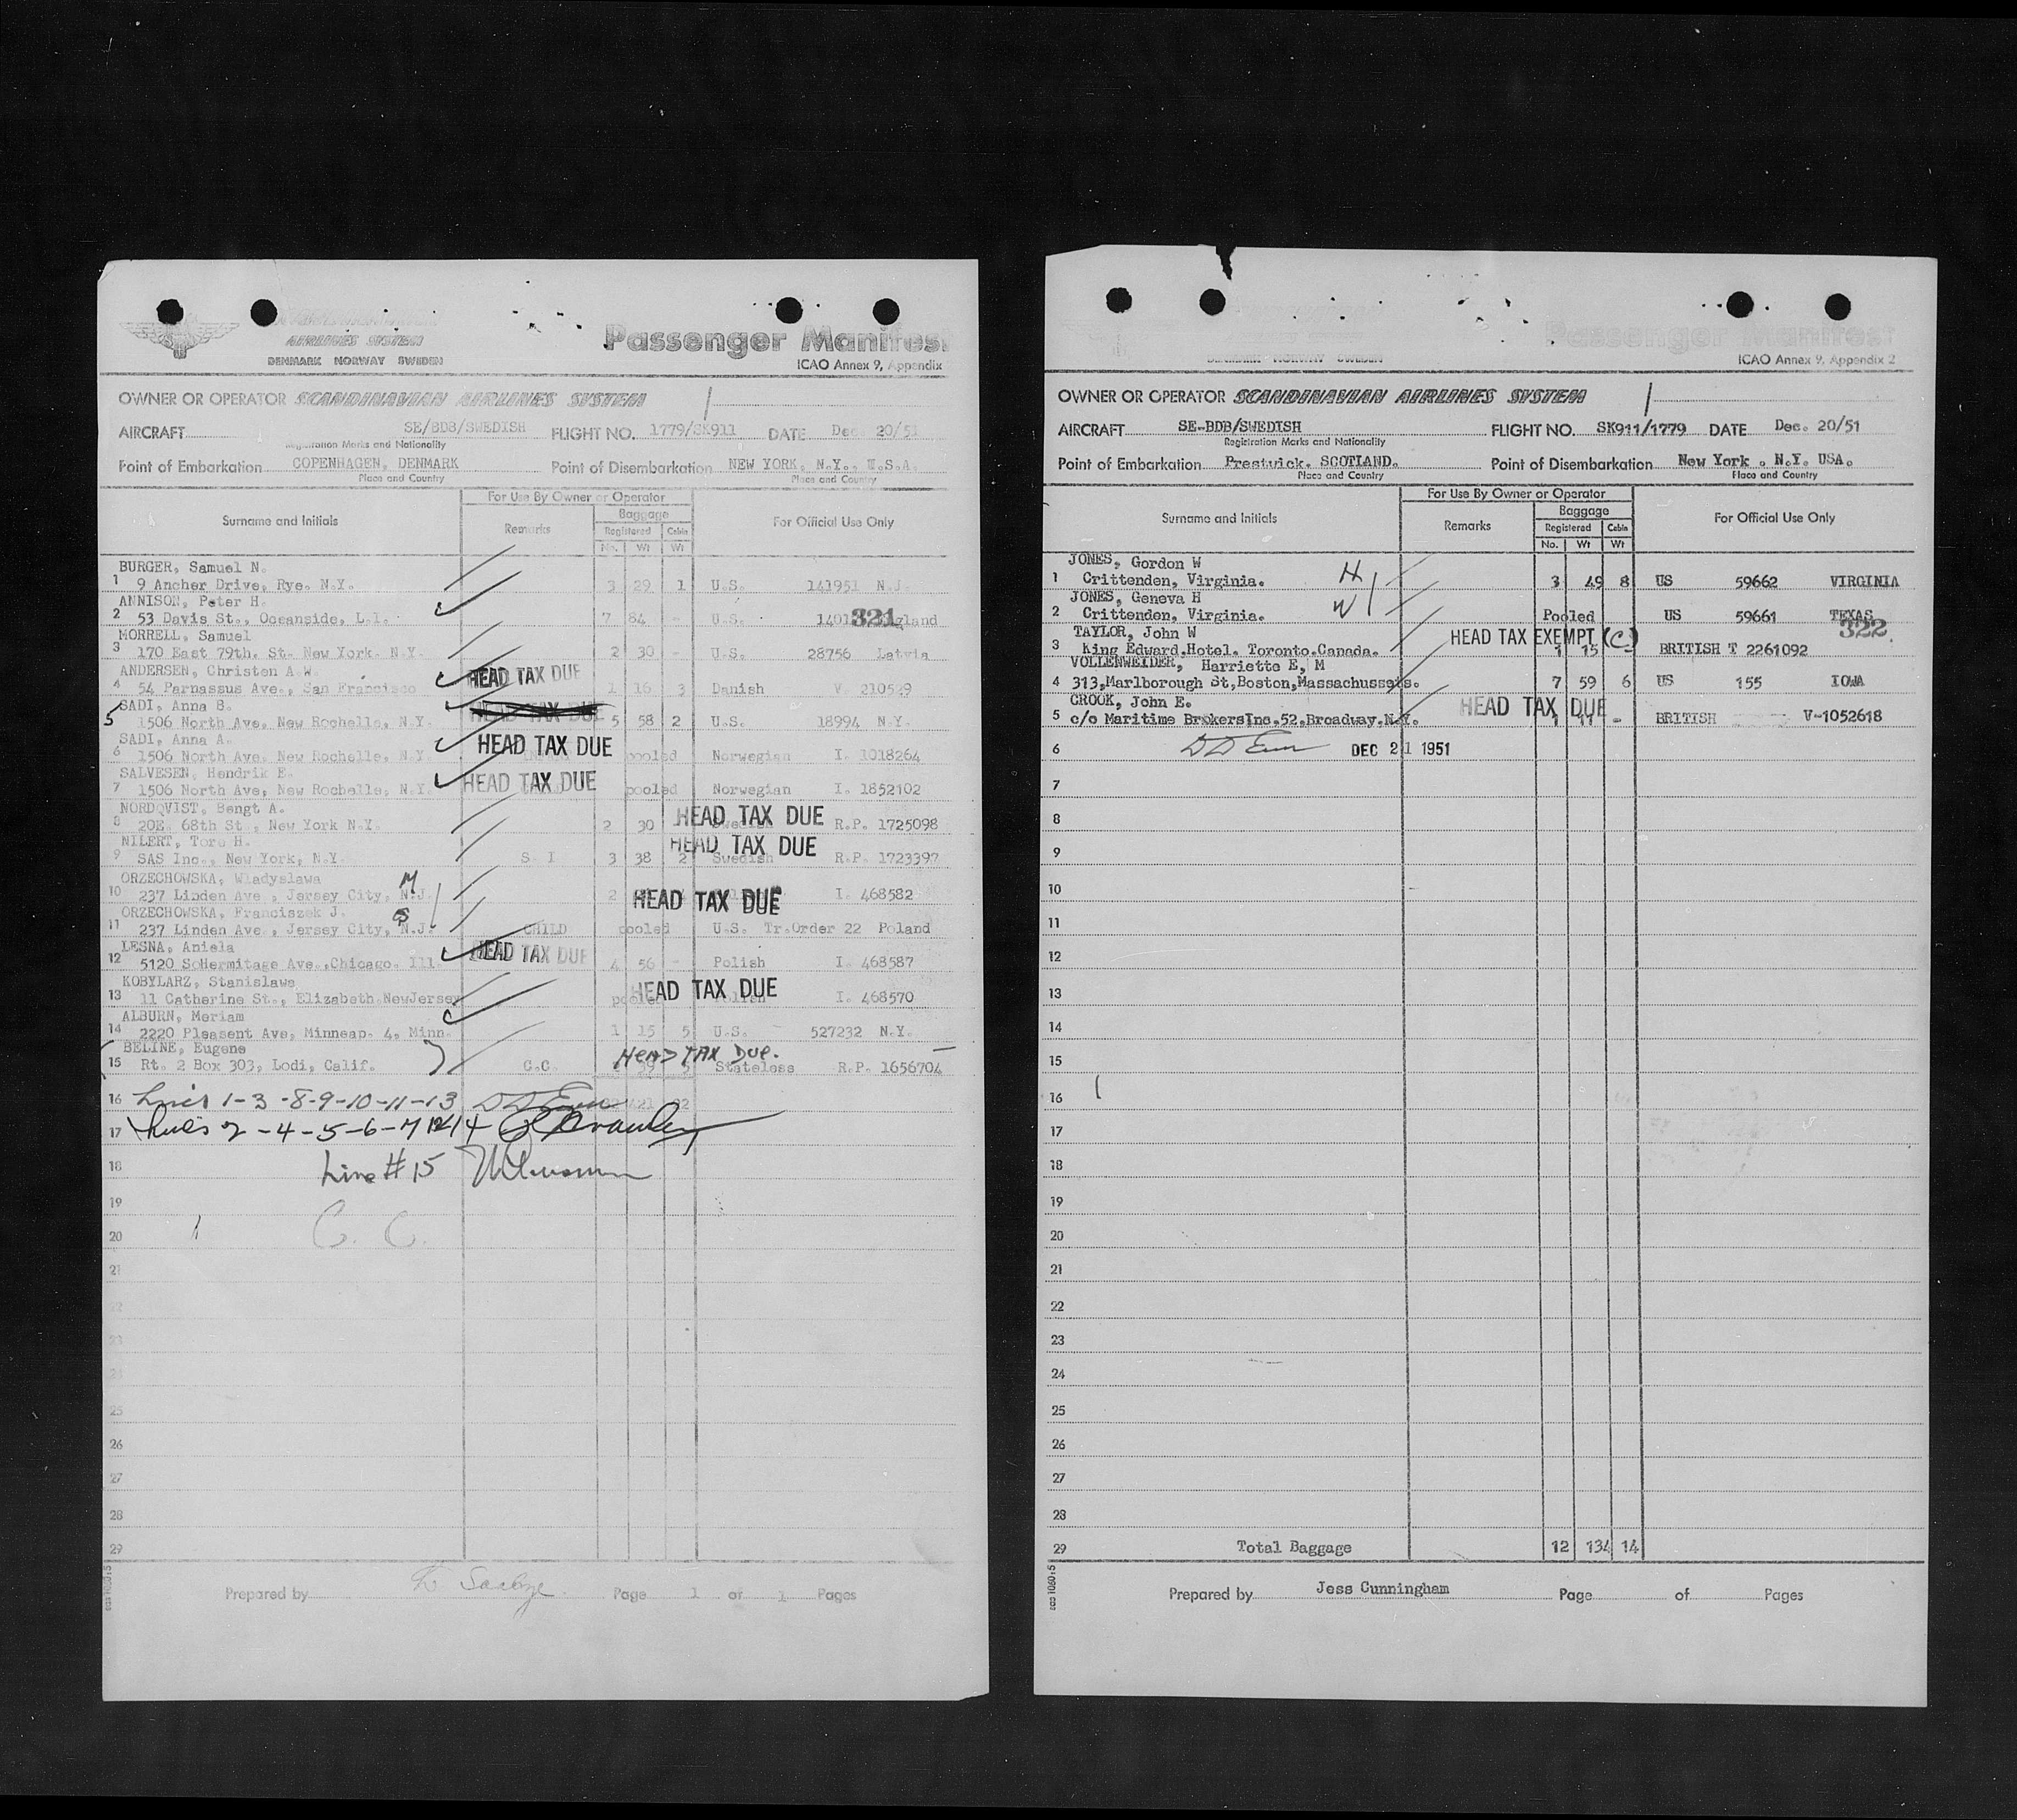 AIRLINES SYSTEM
DENMARK NORWAY SWEDEN
Passenger Manifest
ICAO Annex 9, Appendix
OWNER OR OPERATOR SCANDINAVIAN AIRLINES SYSTEM
AIRCRAFT SE/BDB/SWEDISH FLIGHT NO. 1779/SK911 DATE Dec. 20/51
Registration Marks and Nationality
Point of Embarkation COPENHAGEN, DENMARK Point of Disembarkation NEW YORK, N.Y., U.S.A.
Place and Country Place and Country
For Use By Owner or Operator
Surname and Initials Remarks Baggage For Official Use Only
Registered Cabin
No. Wt Wt
BURGER, Samuel N.
1 9 Ancher Drive, Rye. N.Y. 3 29 1 U.S. 141951 N.J.
ANNISON, Peter H.
2 53 Davis St., Oceanside, L.I. 7 84 - U.S. 1401 321 gland
MORRELL, Samuel
3 170 East 79th. St. New York. N.Y. 2 30 - U.S. 28756 Latvia
ANDERSEN, Christen A.W.
4 54 Parnassus Ave., San Francisco HEAD TAX DUE 1 16 3 Danish V 210529
SADI, Anna B. HEAD TAX DUE
5 1506 North Ave, New Rochelle, N.Y. 5 58 2 U.S. 18994 N.Y.
SADI, Anna A. HEAD TAX DUE
6 1506 North Ave. New Rochelle, N.Y. pooled Norwegian I. 1018264
SALVESEN, Hendrik E. HEAD TAX DUE
7 1506 North Ave, New Rochelle, N.Y. pooled Norwegian I. 1852102
NORDQVIST, Bengt A. HEAD TAX DUE
8 20E. 68th St., New York N.Y. 2 30 Swedish R.P. 1725098
NILERT, Tore H. HEAD TAX DUE
9 SAS Inc., New York, N.Y. S. I 3 38 2 Swedish R.P. 1723397
ORZECHOWSKA, Wladyslawa M
10 237 Linden Ave., Jersey City, N.J. 2 HEAD TAX DUE I. 468582
ORZECHOWSKA, Franciszek J. S
11 237 Linden Ave., Jersey City, N.J. CHILD pooled U.S. Tr.Order 22 Poland
LESNA, Aniela HEAD TAX DUE
12 5120 SoHermitage Ave.,Chicago. Ill. 4 56 - Polish I. 468587
KOBYLARZ, Stanislawa HEAD TAX DUE
13 11 Catherine St., Elizabeth NewJersey pooled Polish I. 468570
ALBURN, Meriam
14 2220 Pleasent Ave, Minneap. 4, Minn. 1 15 5 U.S. 527232 N.Y.
BELINE, Eugene HEAD TAX DUE.
15 Rt. 2 Box 303, Lodi, Calif. C.C. Stateless R.P. 1656704
16 Lines 1-3-8-9-10-11-13
17 Lines 2-4-5-6-7 12 14
18 Line # 15
19
20 C. C.
21
22
23
24
25
26
27
28
29
Prepared by Page 1 of 1 Pages
DENMARK NORWAY SWEDEN
Passenger Manifest
ICAO Annex 9, Appendix 2
OWNER OR OPERATOR SCANDINAVIAN AIRLINES SYSTEM
AIRCRAFT SE-BDB/SWEDISH FLIGHT NO. SK911/1779 DATE Dec. 20/51
Registration Marks and Nationality
Point of Embarkation Prestwick. SCOTLAND. Point of Disembarkation New York . N.Y. USA.
Place and Country Place and Country
For Use By Owner or Operator
Surname and Initials Remarks Baggage For Official Use Only
Registered Cabin
No. Wt Wt
JONES, Gordon W
1 Crittenden, Virginia. H 3 49 8 US 59662 VIRGINIA
JONES, Geneva H
2 Crittenden, Virginia. W Pooled US 59661 TEXAS
322
TAYLOR, John W HEAD TAX EXEMPT (C)
3 King Edward.Hotel. Toronto.Canada. 1 15 - BRITISH T 2261092
VOLLENWEIDER, Harriette E, M
4 313,Marlborough St,Boston,Massachussets. 7 59 6 US 155 IOWA
CROOK, John E. HEAD TAX DUE
5 c/o Maritime BrokersInc.52.Broadway.N.Y. 1 11 - BRITISH V-1052618
6 DEC 21 1951
7
8
9
10
11
12
13
14
15
16
17
18
19
20
21
22
23
24
25
26
27
28
29 Total Baggage 12 134 14
Prepared by Jess Cunningham Page of Pages